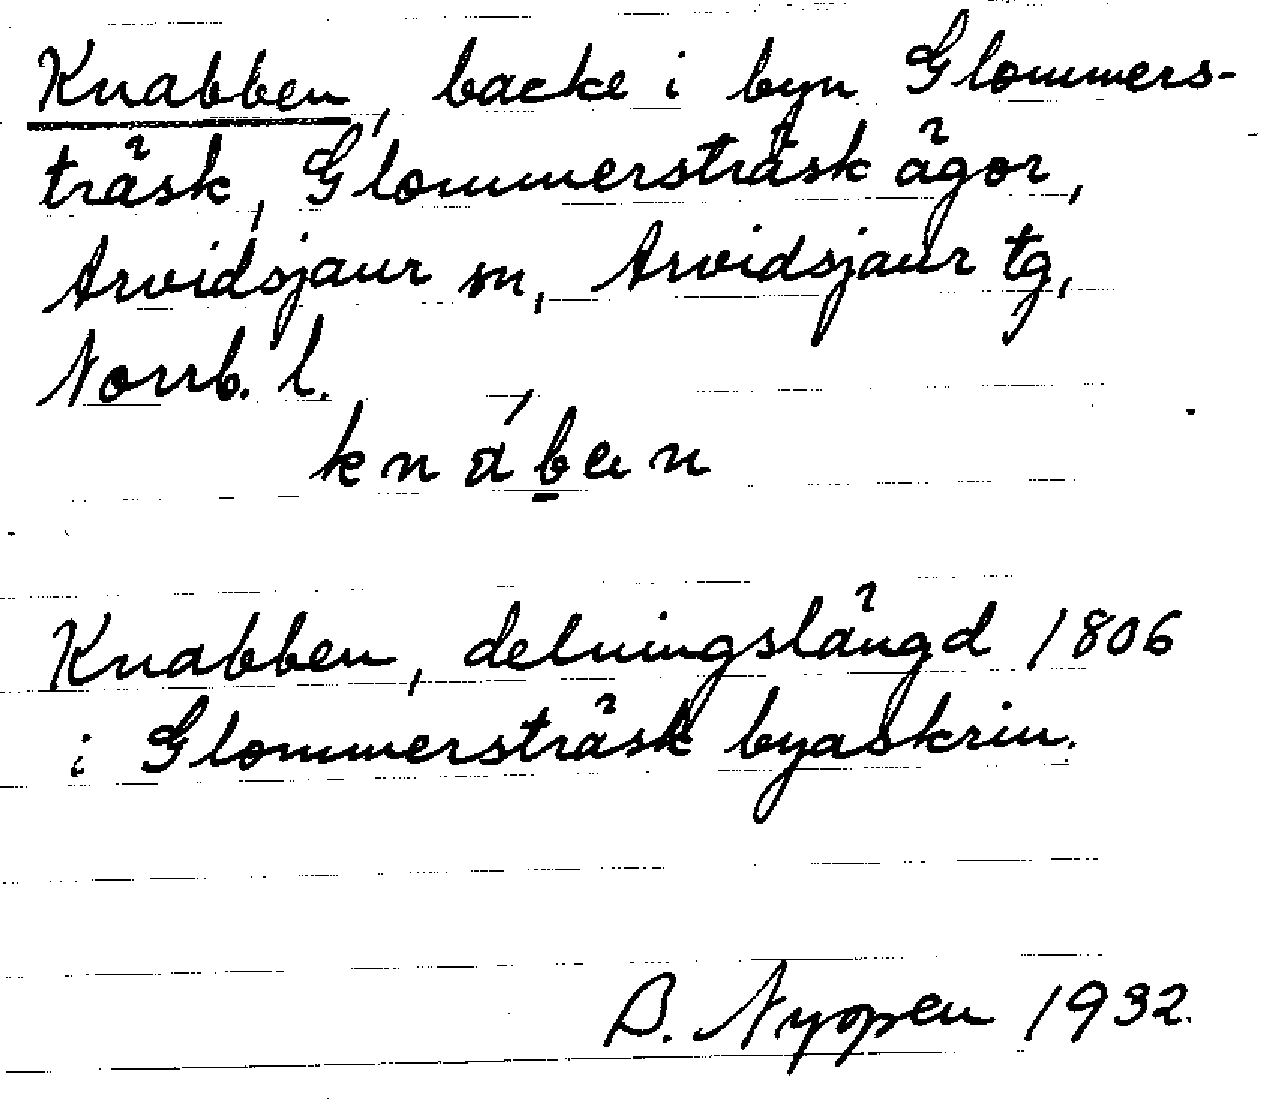 Knabben, backe i byn Glommers-
träsk, Glommersträsk ägor,
Arvidsjaur sn, Arvidsjaur tg,
Norrb. l.
Knabben, delningslängd 1806
i Glommersträsk byaskrin.
B. Nyopen 1932.